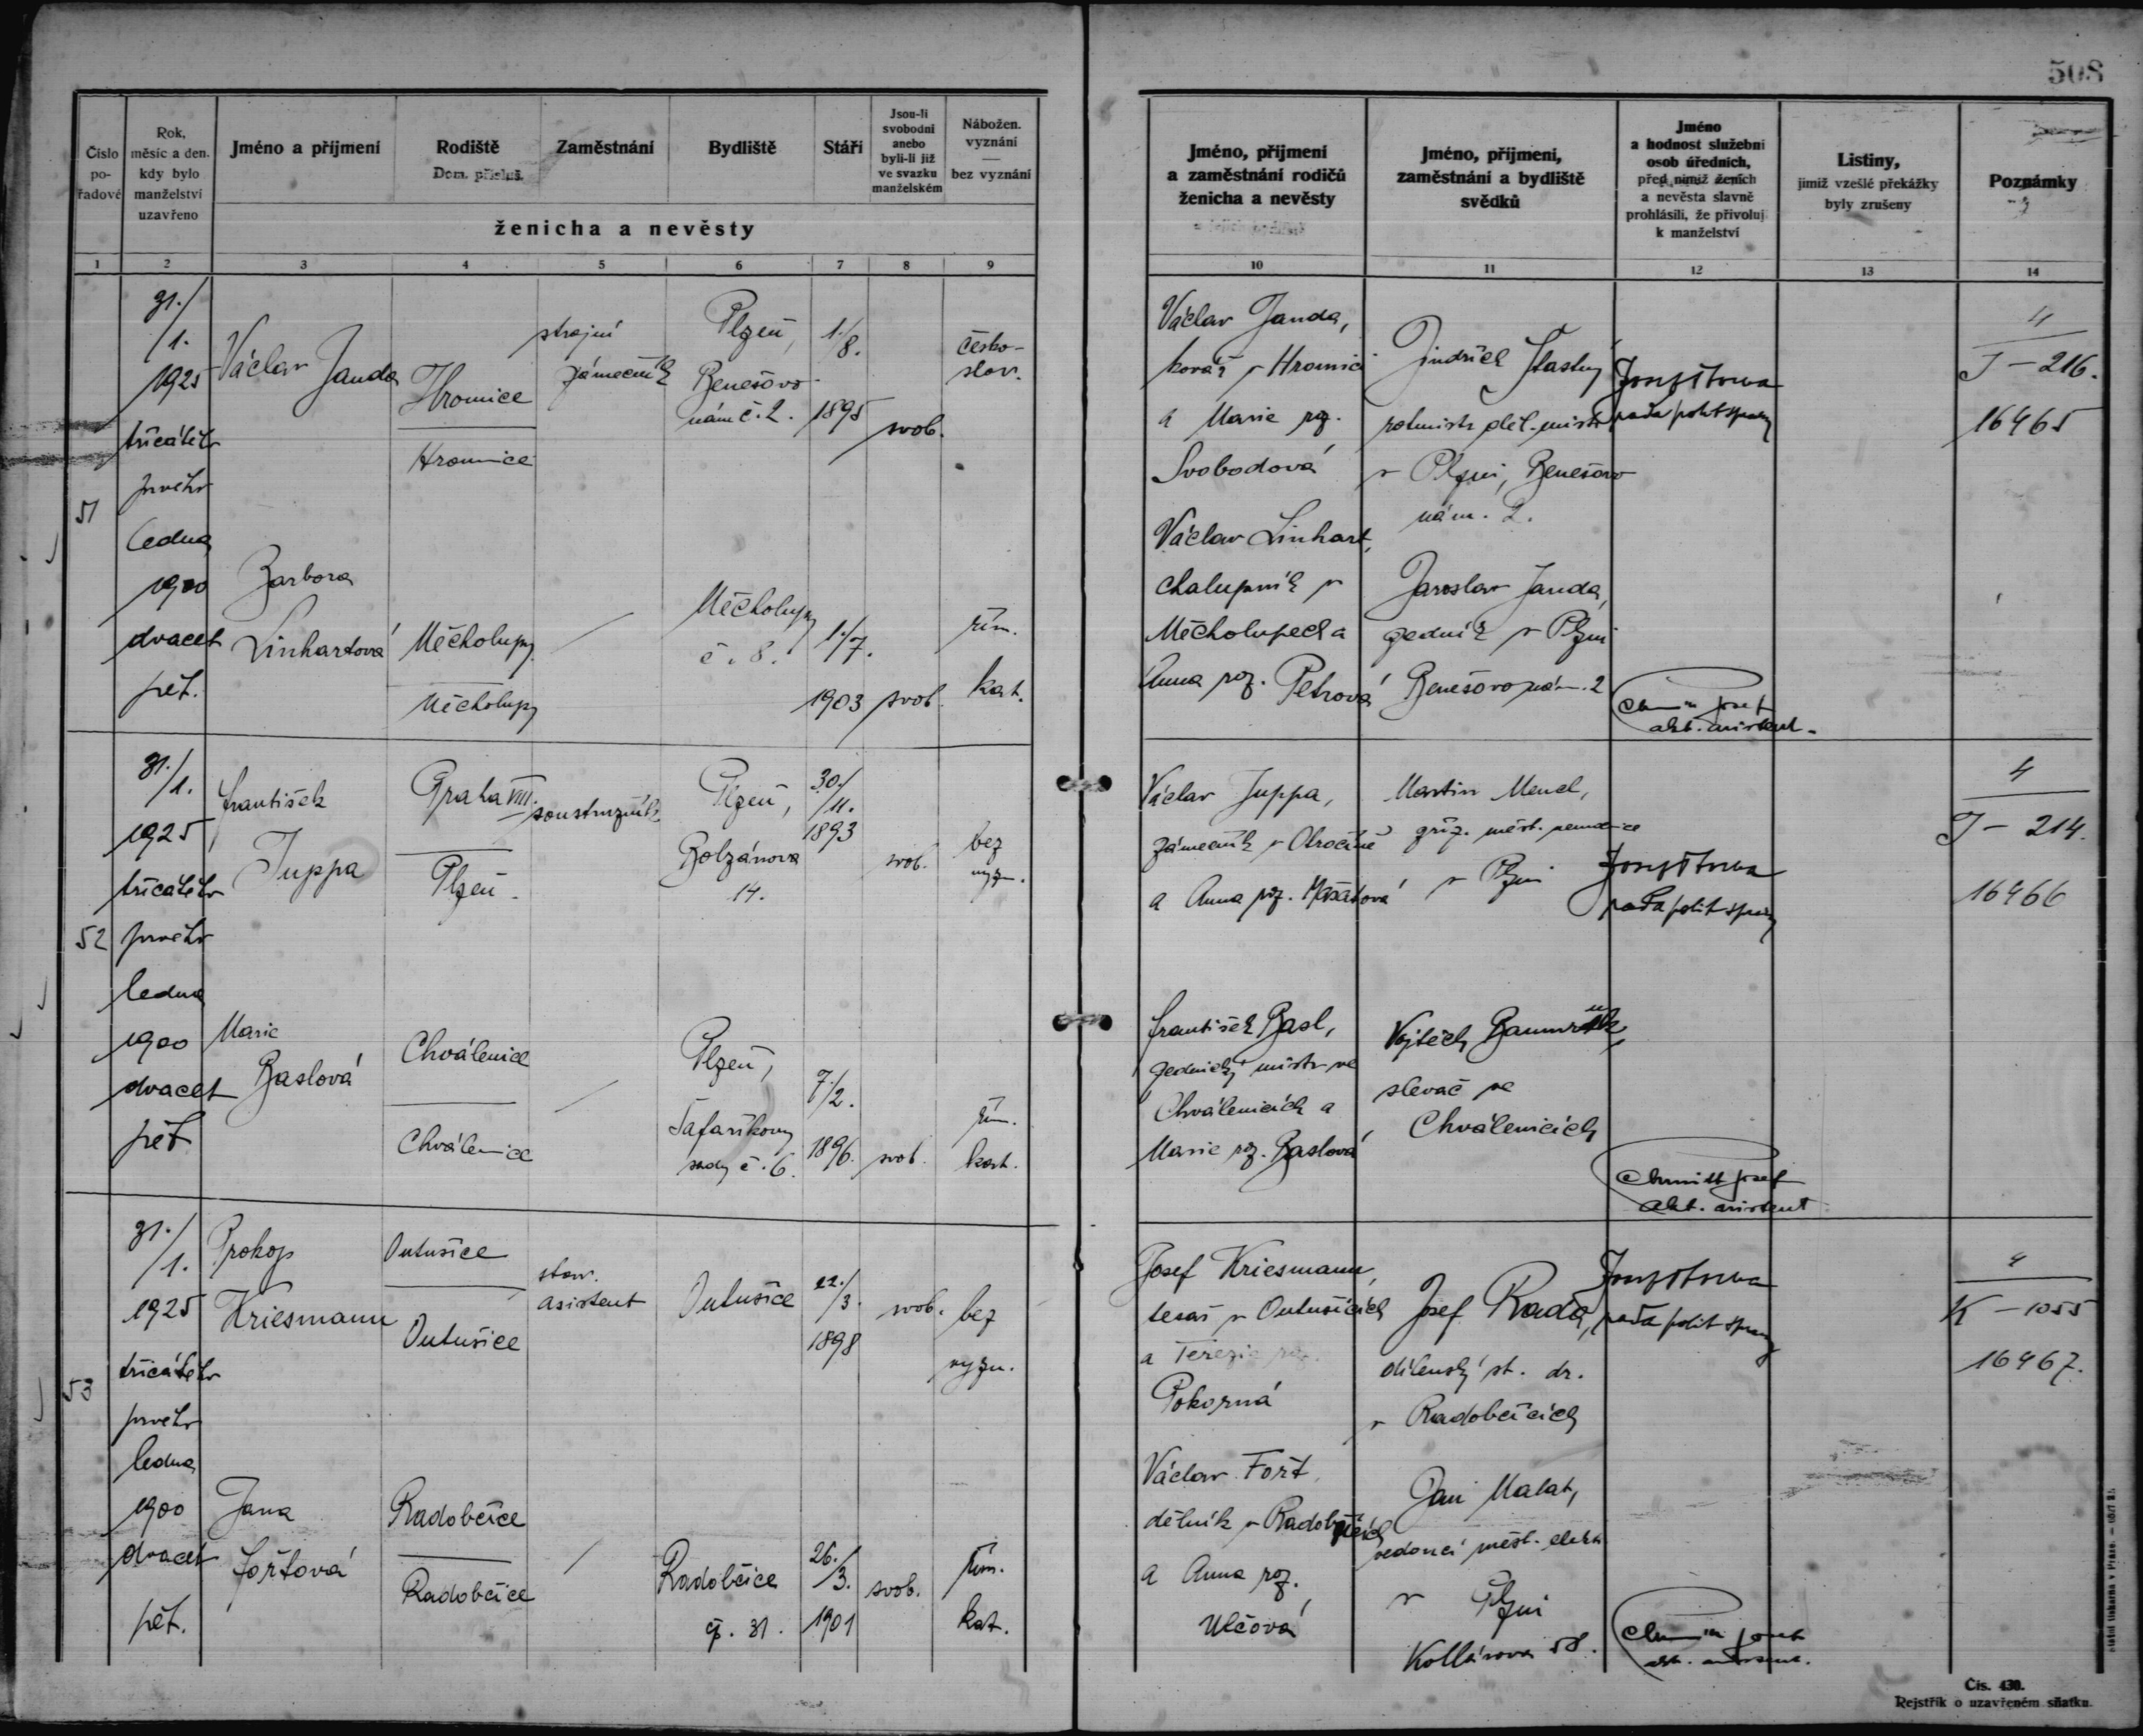 508
Číslo pořadové
Rok, měsíc a den, kdy bylo manželství uzavřeno
Jméno a příjmení
Rodiště
Dom. přísluš.
Zaměstnání
Bydliště
Stáří
Jsou-li svobodni anebo byli-li již ve svazku manželském
Nábožen. vyznání — bez vyznání
ženicha a nevěsty
Jméno, příjmení a zaměstnání rodičů ženicha a nevěsty
Jméno, příjmení, zaměstnání a bydliště svědků
Jméno a hodnost služební osob úředních, před nimiž ženich a nevěsta slavně prohlásili, že přivolují k manželství
Listiny, jimiž vzešlé překážky byly zrušeny
Poznámky
1 2 3 4 5 6 7 8 9 10 11 12 13 14
51
31./1.
1925
třicátého
prvého
ledna
1900
dvacet
pět.
Václav Janda
Hromnice
Hromnice
strojní
zámečník
Plzeň,
Benešovo
nám č. 2.
1./8.
1895
svob.
česko-
slov.
Barbora
Linhartová
Měcholupy
Měcholupy
Měcholupy
č. 8.
1./7.
1903
svob.
řím.
kat.
Václav Janda,
kovář v Hromnici
a Marie roz.
Svobodová
Václav Linhart,
chalupník v
Měcholupech a
Anna roz. Petrová
Jindřich Šťastný
rotmistr děl.
v Plzni, Benešovo
nám. 2.
Jaroslav Janda,
zedník v Plzni
Benešovo nám. 2
rada polit správy
Josef
akt. asistent.
4
J – 216.
16465
52
31./1.
1925
třicátého
prvého
ledna
1900
dvacet
pět
František
Juppa
Praha VIII.
Plzeň.
soustružník
Plzeň,
Bolzánova
14.
30./11.
1893
svob.
bez
vyzn.
Marie
Baslová
Chválenice
Chválenice
Plzeň,
Šafaříkovy
sady č. 6.
7./2.
1896.
svob.
řím.
kat.
Václav Juppa,
zámečník v Otročíně
a Anna roz.
František Basl,
zednický mistr ve
Chválenicích a
Marie roz. Baslová
Martin Mencl,
zříz. měst.
v Plzni
Vojtěch
slevač ve
Chválenicích
rada polit správy
Josef
akt. asistent
4
J – 214.
16466
53
31./1.
1925
třicátého
prvého
ledna
1900
dvacet
pět.
Prokop
Kriesmann
Outušice
Outušice
stav.
asistent
Outušice
22./3.
1898
svob.
bez
vyzn.
Jana
Fořtová
Radobčice
Radobčice
Radobčice
čp. 31.
26./3.
1901
svob.
řím.
kat.
Josef Kriesmann,
tesař v Outušicích
a Terezie roz.
Pokorná
Václav Fořt,
dělník v Radobčicích
a Anna roz.
Ulčová
Josef Rada,
dílenský st. dr.
v Radobčicích
Jan Malat,
vedoucí měst. elektr.
v Plzni
Kollárova 58.
rada polit správy
Josef
akt. asistent.
4
K – 1055
16467.
Čís. 430.
Rejstřík o uzavřeném sňatku.